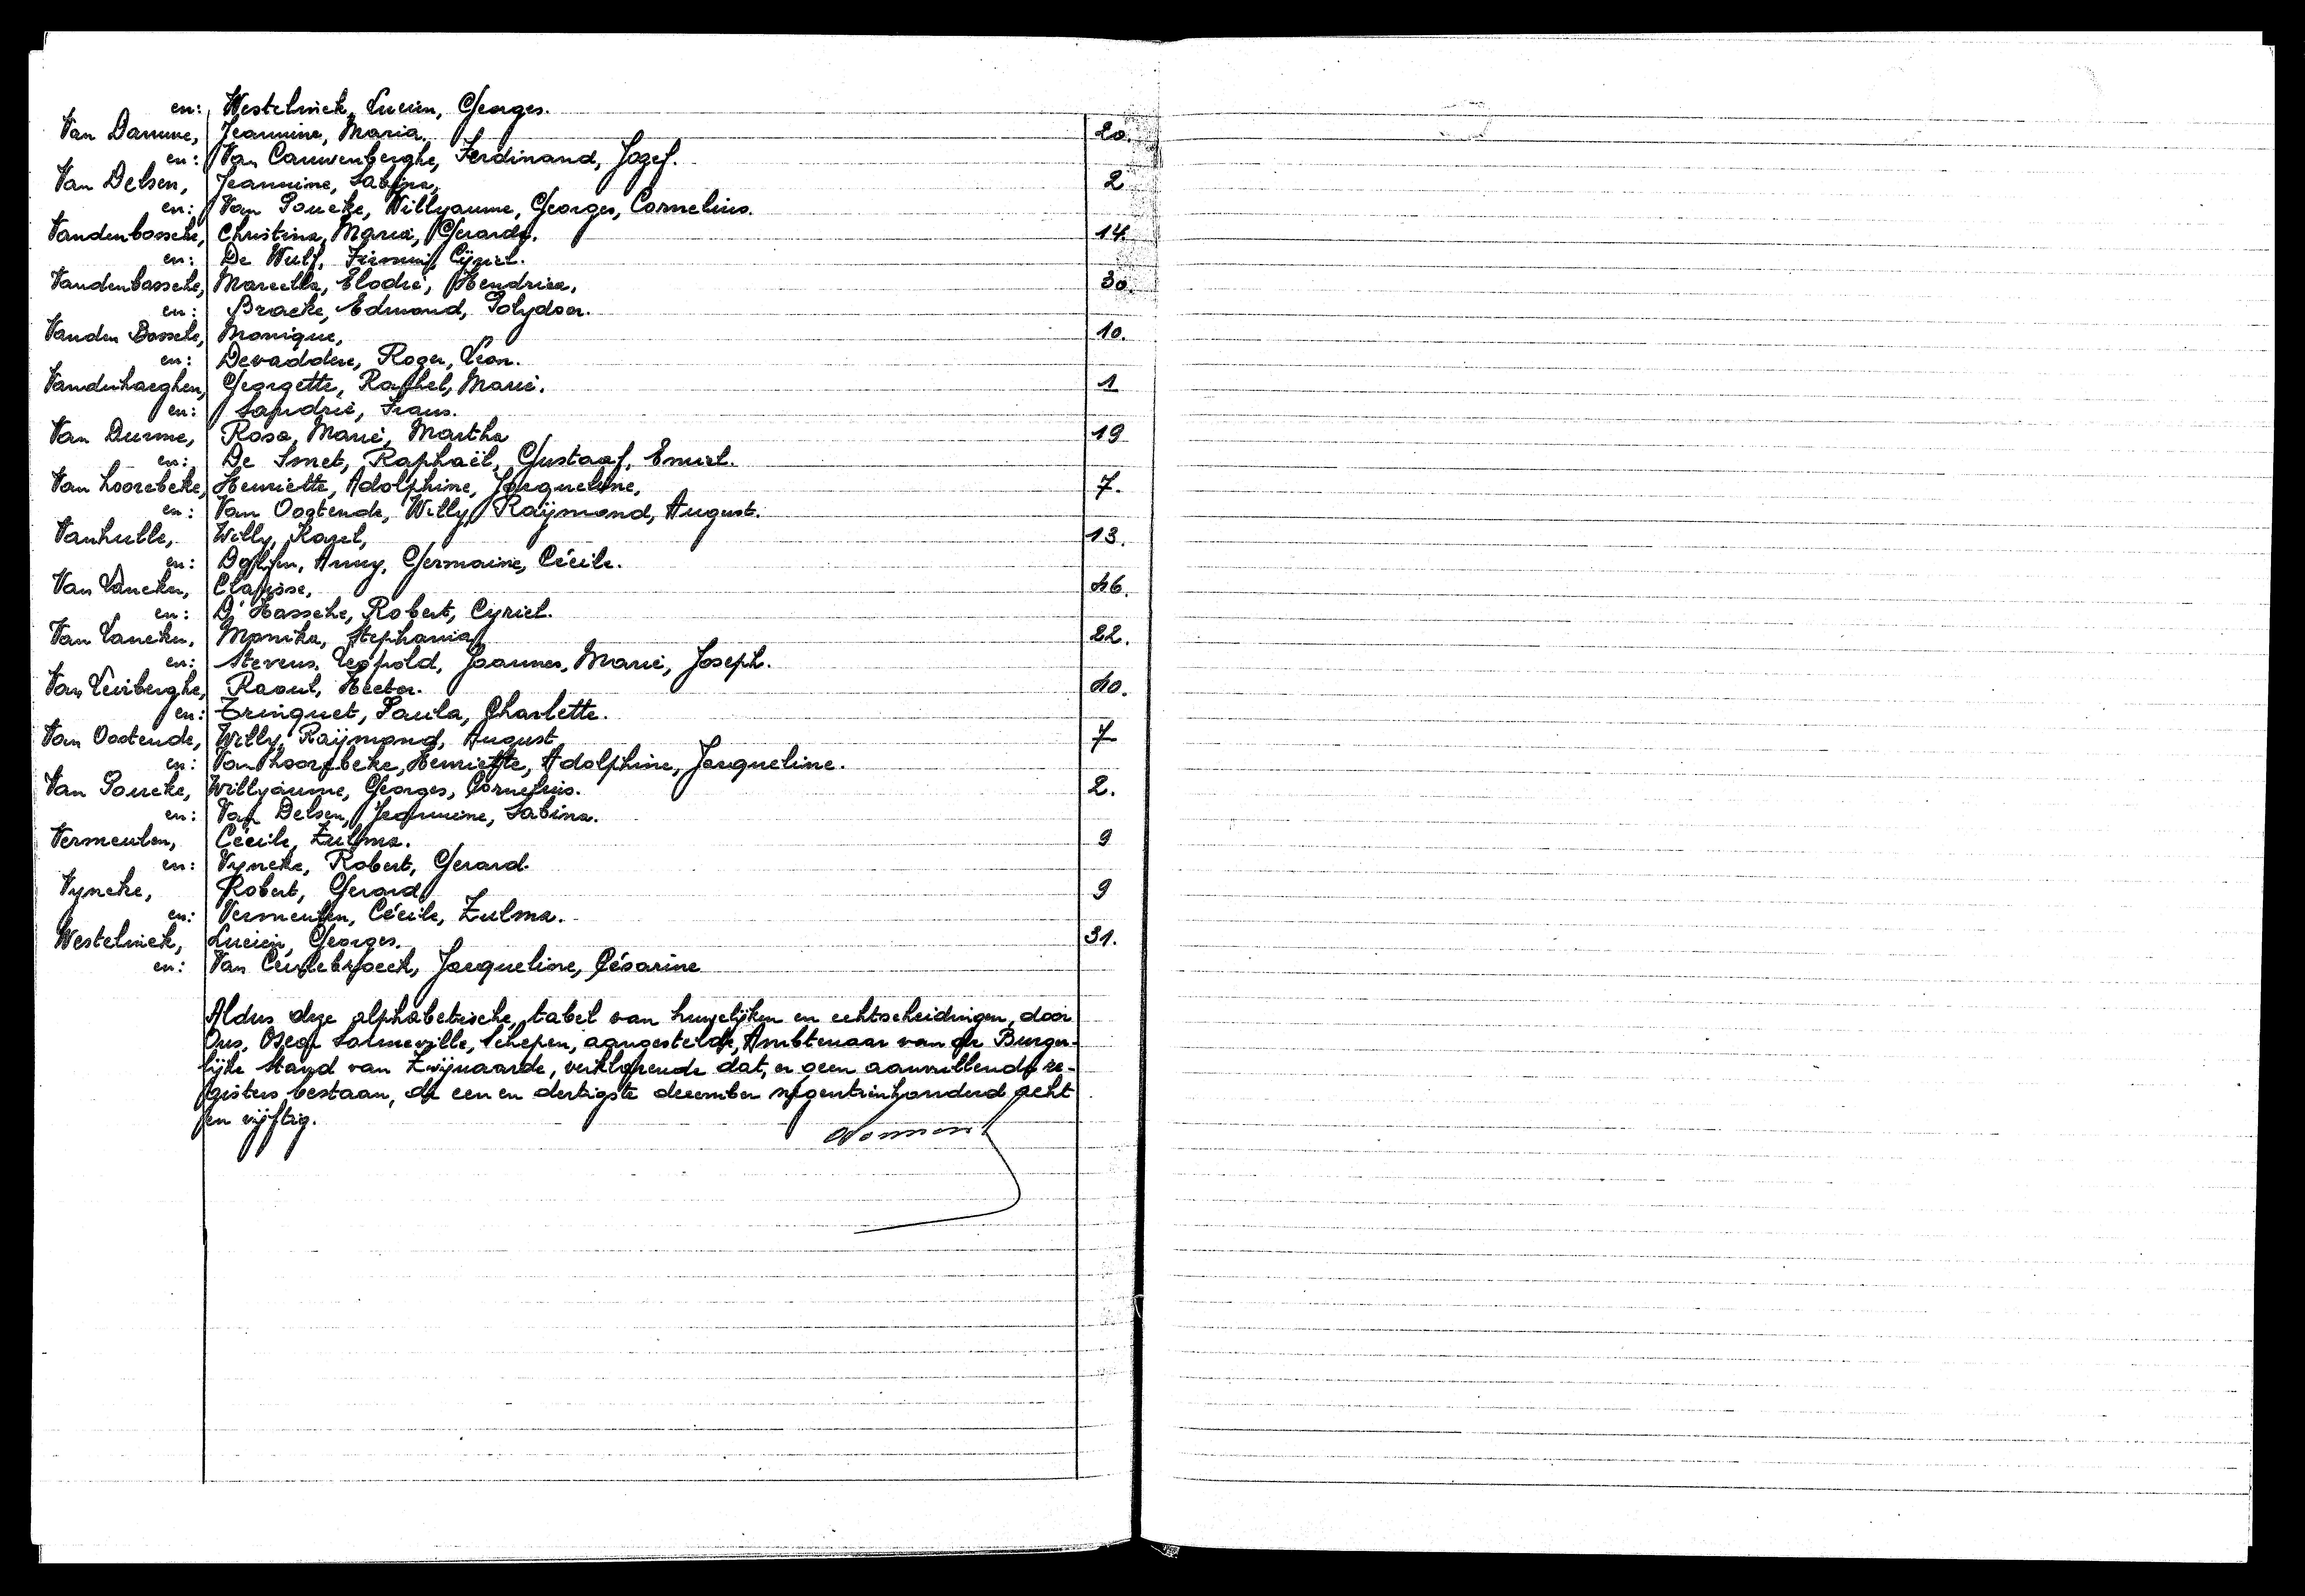 en: Westelinck, Lucien, Georges.
Van Damme, Jeannine, Maria. 20.
en: Van Cauwenberghe, Ferdinand, Jozef.
Van Delsen, Jeannine, Sabina, 2
en: Van Poucke, Willyaume, Georges, Cornelius.
Vandenbossche, Christina, Maria, Gerarda. 14.
en: De Wulf, Firmin, Cyriel.
Vandenbossche, Marcella, Elodie, Hendrica, 30.
en: Bracke, Edmond, Polydoor.
Vanden Bossche, Monique, 10.
en: Devaddere, Roger, Leon.
Vanderhaeghen, Georgette, Raphel, Marie. 1
en: Sandrie, Frans.
Van Durme, Rosa, Marie, Martha 19
en: De Smet, Raphaël, Gustaaf, Emiel.
Van Hoorebeke, Henriette, Adolphine, Jacqueline, 7.
en: Van Oostende, Willy, Raÿmond, August.
Vanhulle, Willy, Karel, 13.
en: Dolfijn, Anny, Germaine, Cécile.
Van Laneken, Clarisse, 46.
en: D'Hassche, Robert, Cyriel.
Van Laneken, Monika, Stephania 22.
en: Stevens, Leopold, Joannes, Marie, Joseph.
Van Leirberghe, Raoul, Hector. 40.
en: Trinquet, Paula, Charlette.
Van Oostende, Willy, Raÿmond, August 7
en: Van Hoorebeke, Henriette, Adolphine, Jacqueline.
Van Poucke, Willyaume, Georges, Cornelius. 2.
en: Van Delsen, Jeannine, Sabina.
Vermeulen, Cécile, Zulma. 9
en: Vyncke, Robert, Gerard.
Vyncke, Robert, Gerard 9
en: Vermeulen, Cécile, Zulma.
Westelinck, Lucien, Georges. 31.
en: Van Ceulebroeck, Jacqueline, Césarine
Aldus deze alphabetische tabel van huwelijken en echtscheidingen, door
Ons, Oscar Sanneville, Schepen, aangestelde, Ambtenaar van de Burger-
lijke Stand van Zwijnaarde, verklarende dat, er geen aanvullende re-
gisters bestaan, de een en dertigste december negentienhonderd acht
en vijftig.